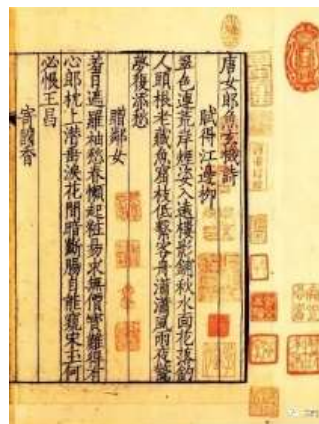 唐女郎魚玄機詩
賦得江邊柳
翠色連荒岸煙姿入遠樓影鋪秋水面花落釣
人頭根老藏魚窟枝低繫客舟瀟瀟風雨夜驚
夢復添愁
贈鄰女
羞日遮羅袖愁春懶起粧易求無價寶難得有
心郎枕上潛垂淚花間暗斷腸自能窺宋玉何
必恨王昌
寄國香